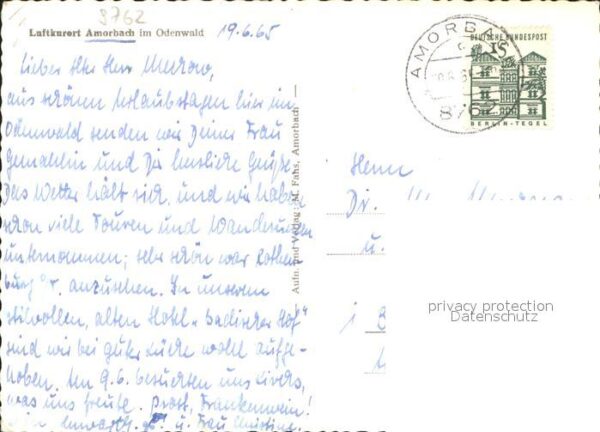 8762
Luftkurort Amorbach im Odenwald
19.6.65
AMORBACH
8762
DEUTSCHE BUNDESPOST
15
BERLIN-TEGEL
Lieber Alter Herr
aus schönen Urlaubstagen hier im
Odenwald senden wir Deiner Frau
Gemahlin und Dir herzliche Grüße.
Das Wetter hält sich, und wir haben
schon viele Touren und Wanderungen
unternommen; sehr schön war Rothen-
burg o.T. anzusehen. In unserem
stilvollen, alten Hotel „Badischer Hof"
sind wir bei guter Küche wohl aufge-
hoben. Am 9.6. besuchten uns
was uns freute. Prost, Frankenwein!
u. Frau Christine
Aufn. und Verlag M. Fahs, Amorbach
Herrn
Dir.
u.
privacy protection
Datenschutz